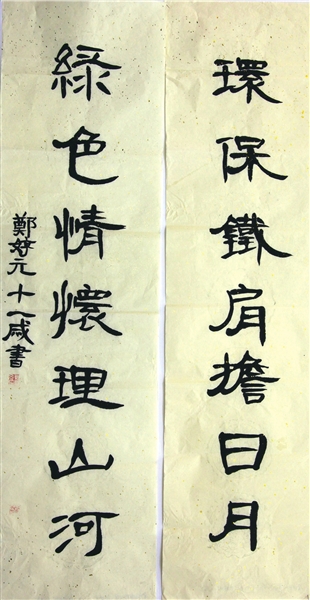 環保鐵肩擔日月
綠色情懷理山河
鄭好元十八歲書